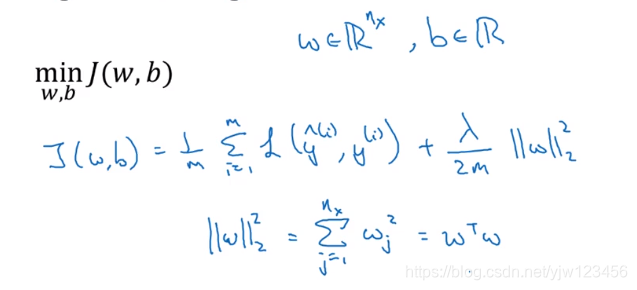 w ∈ ℝ^{n_x}, b ∈ ℝ
min_{w,b} J(w, b)
J(w,b) = 1/m ∑_{i=1}^{m} ℒ(ŷ^{(i)}, y^{(i)}) + λ/2m ||w||_2^2
||w||_2^2 = ∑_{j=1}^{n_x} w_j^2 = w^T w
https://blog.csdn.net/yjw123456